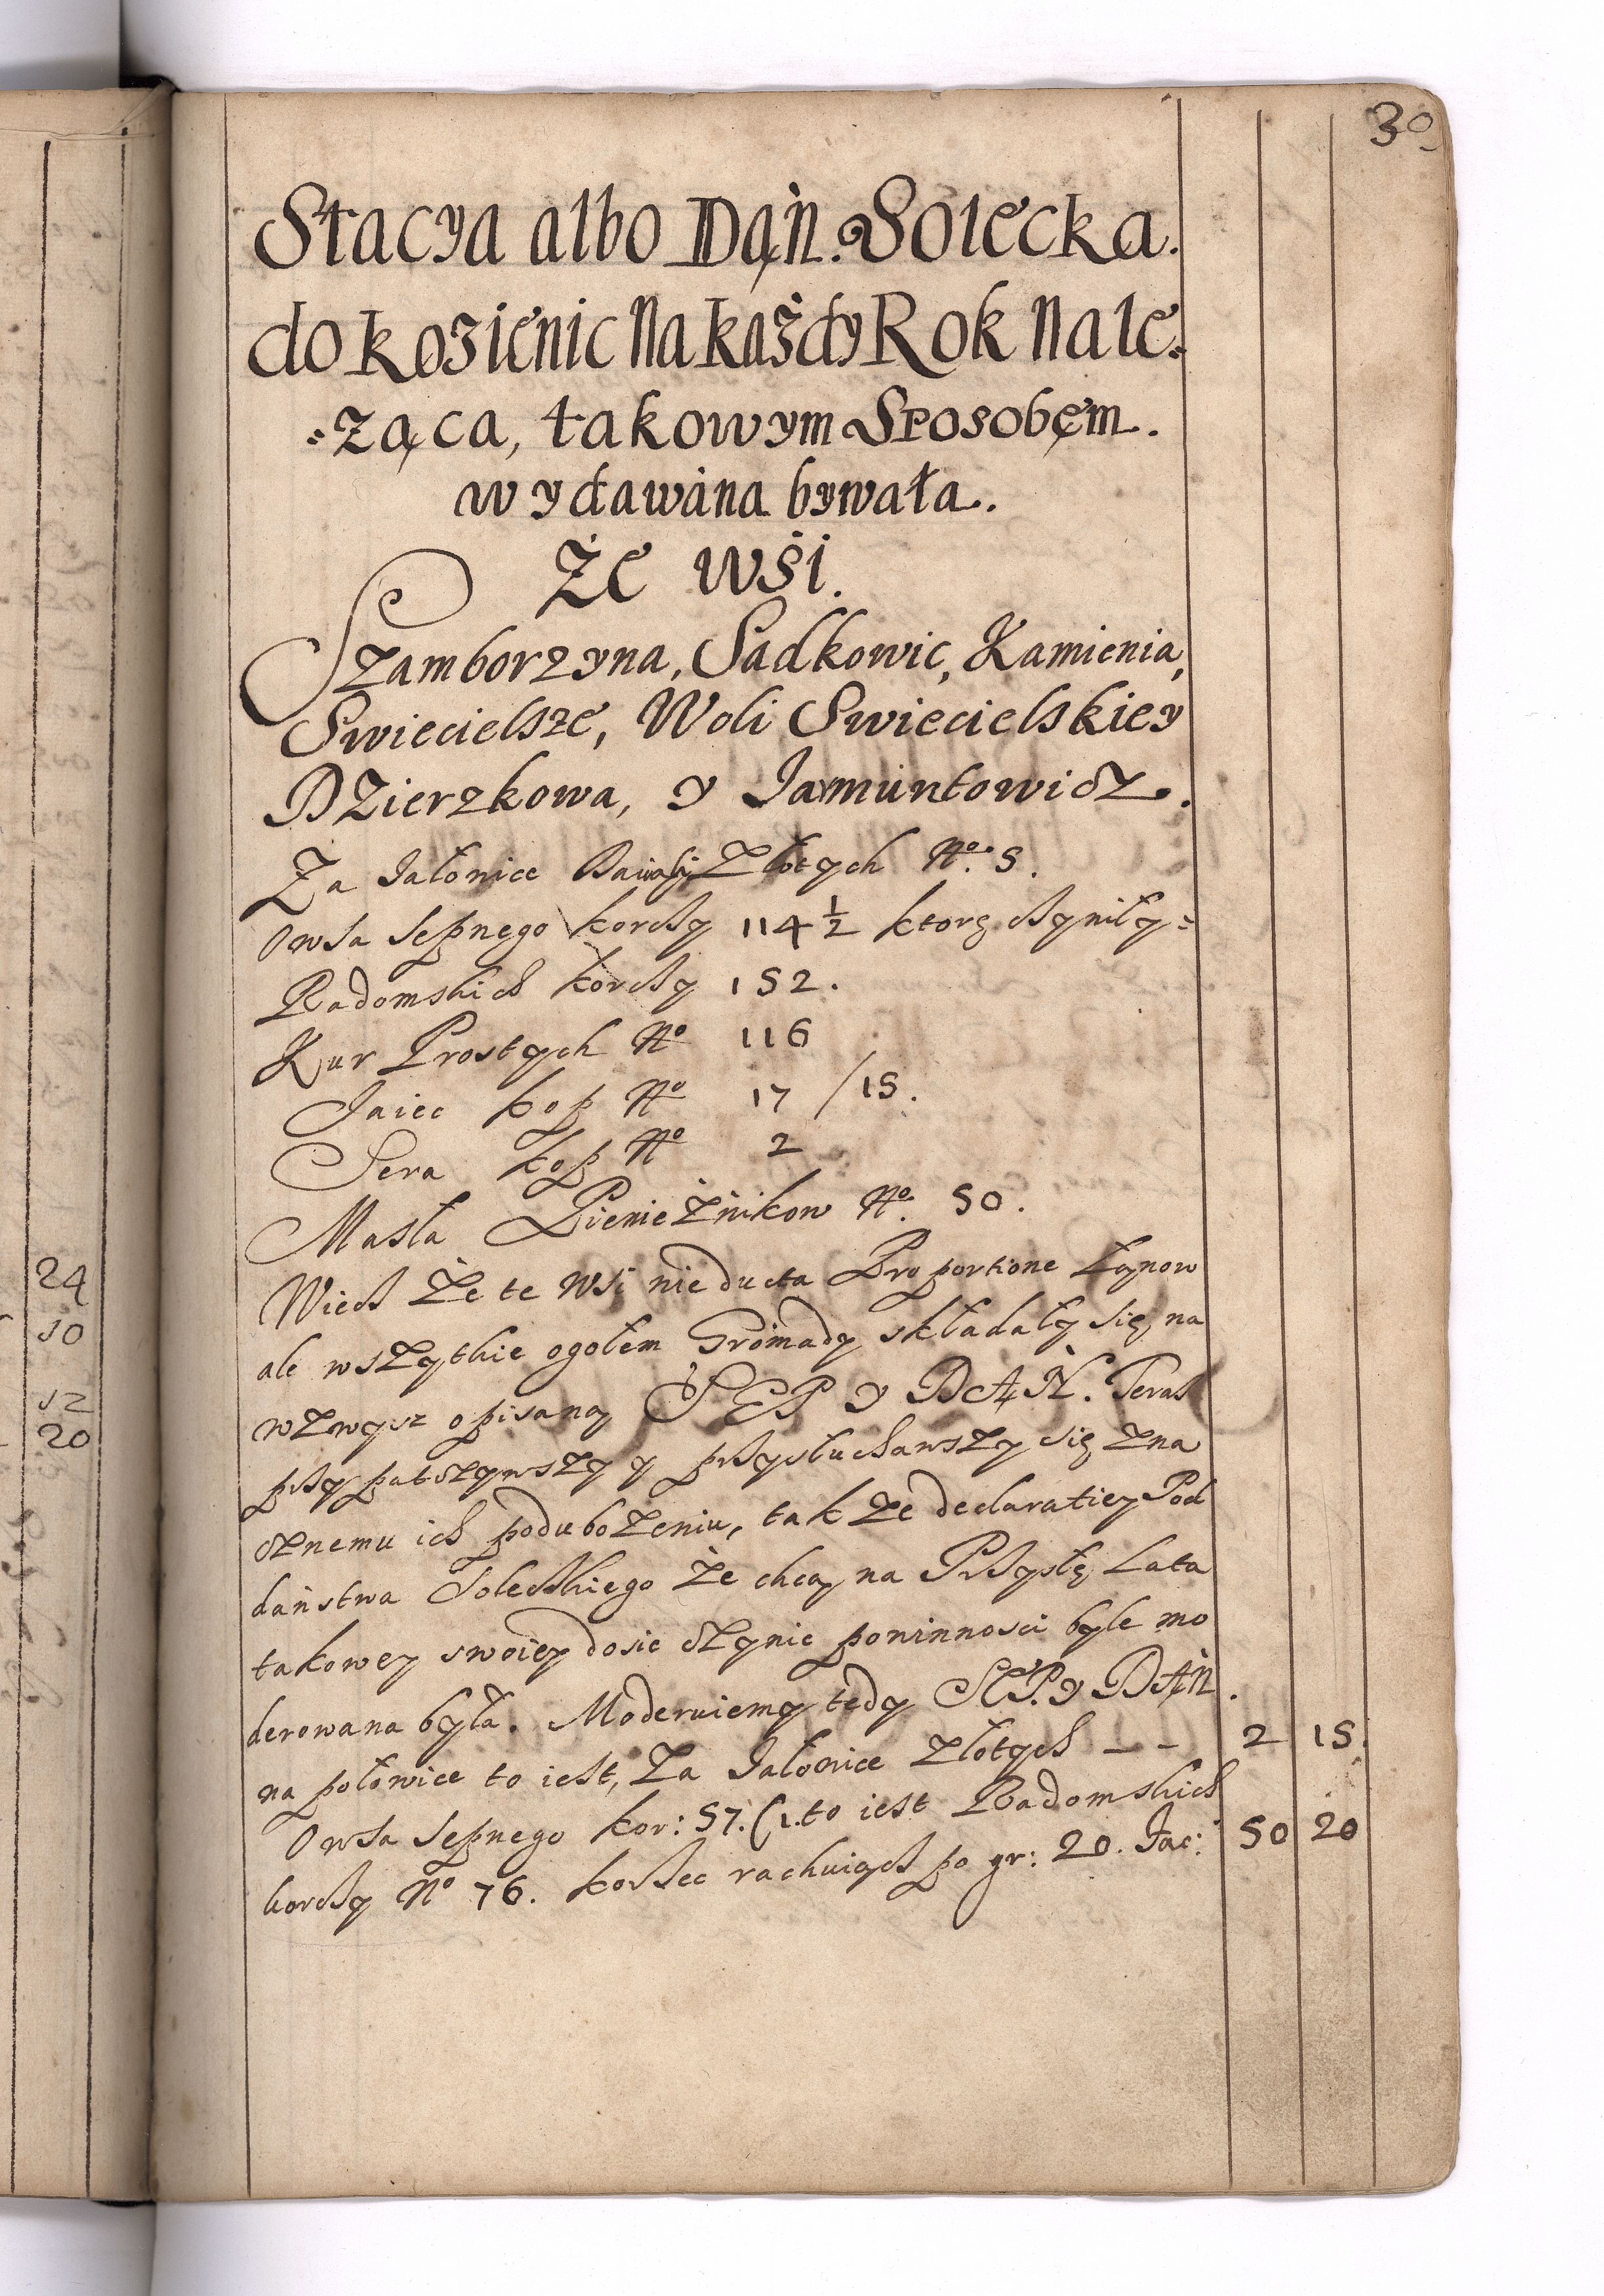 30
Stacya albo Dąń. Solecka.
do kozienic Na każdy Rok Nale=
=ząca, takowym Sposobęm.
wydawana bywała.
Że wśi.
Szamborzyna, Sadkowic, Kamienia,
Swiecielsze, Woli Swiecielskiey
Dzierzkowa, y Jaxmuntowicz.
Za Jałowice Dawali Złotych No. 5.
Owsa sepnego korczy 114 1/2 ktorę czyniły=
Radomskich korczy 152.
Kur Prostych No 116
Jaiec kop No 17 / 15.
Sera kop No 2
Masła Pienieżnikow No. 50.
Wiecz Że te Wśi nie ducta Proportione Łanow
ale wszytkie ogołem Gromady składały się na
wzwysz opisaną SEP y DAŃ. Teraz
przypatszywszy y przysłuchawszy się zna
cznemu ich podubożeniu, tak że declaratiey Pod
daństwa Soleckiego że chcą na Przyszłę Lata
takowey swoiey dosic czynic powinnosci byle mo
derowana była. Moderuiemy tedy SEP. y DAŃ.
na połowice to iest, Za Jałowice złotych — — 2 15.
Owsa sepnego kor: 57. (1. to iest Radomskich
korczy No 76. korzec rachuiącz po gr: 20. Fac: 50 20
24
10
12
20